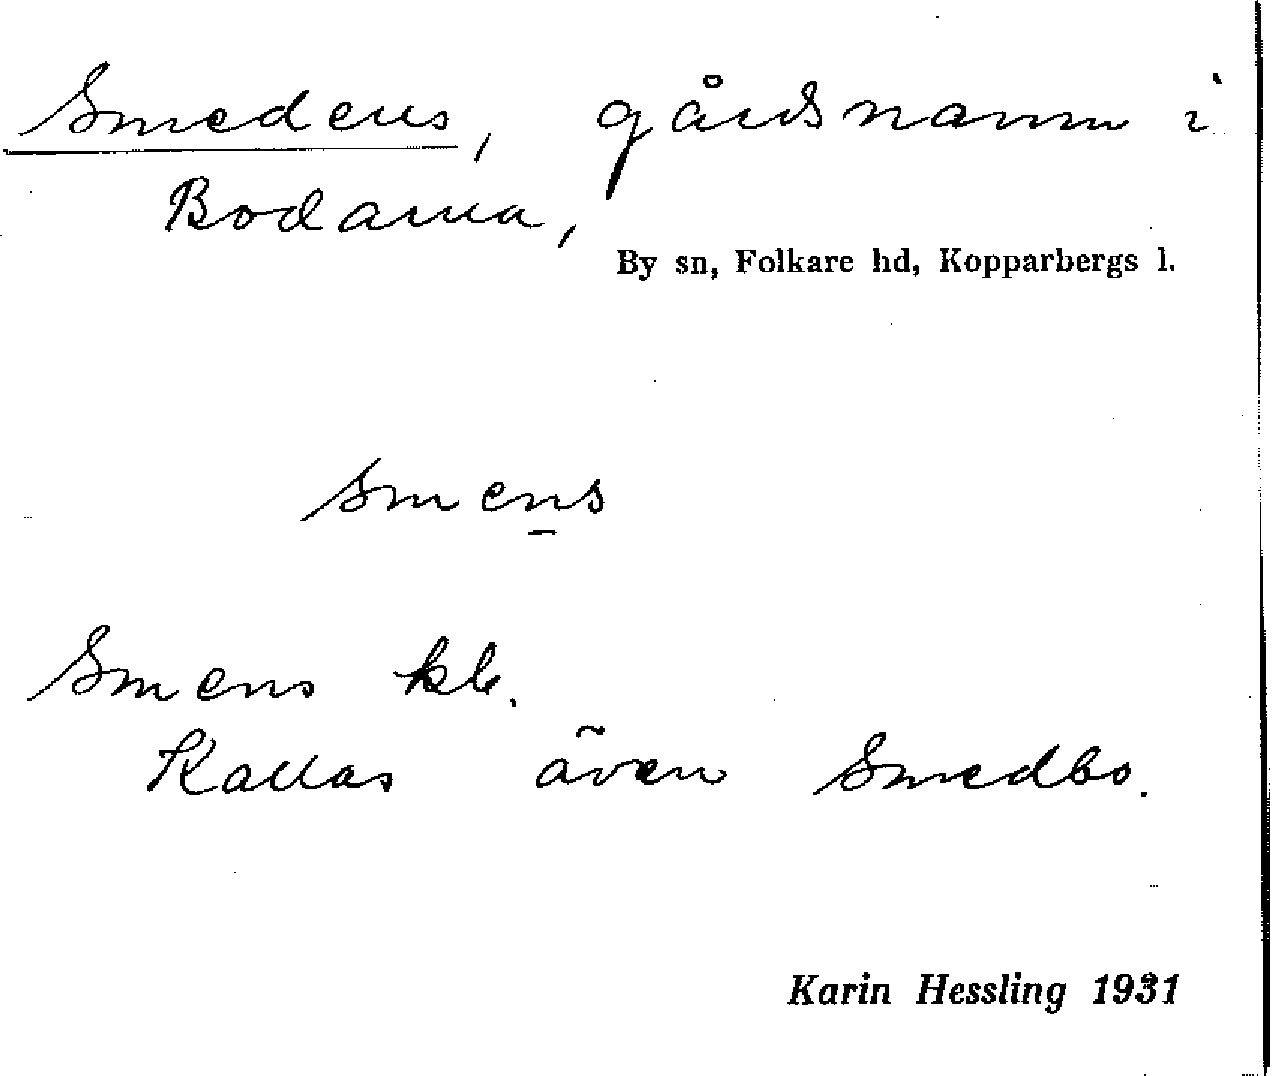 Smedens, gårdsnamn i
Bodarna,
By sn, Folkare hd, Kopparbergs l.
smens
Smens kb.
Kallas även Smedbo.
Karin Hessling 1931